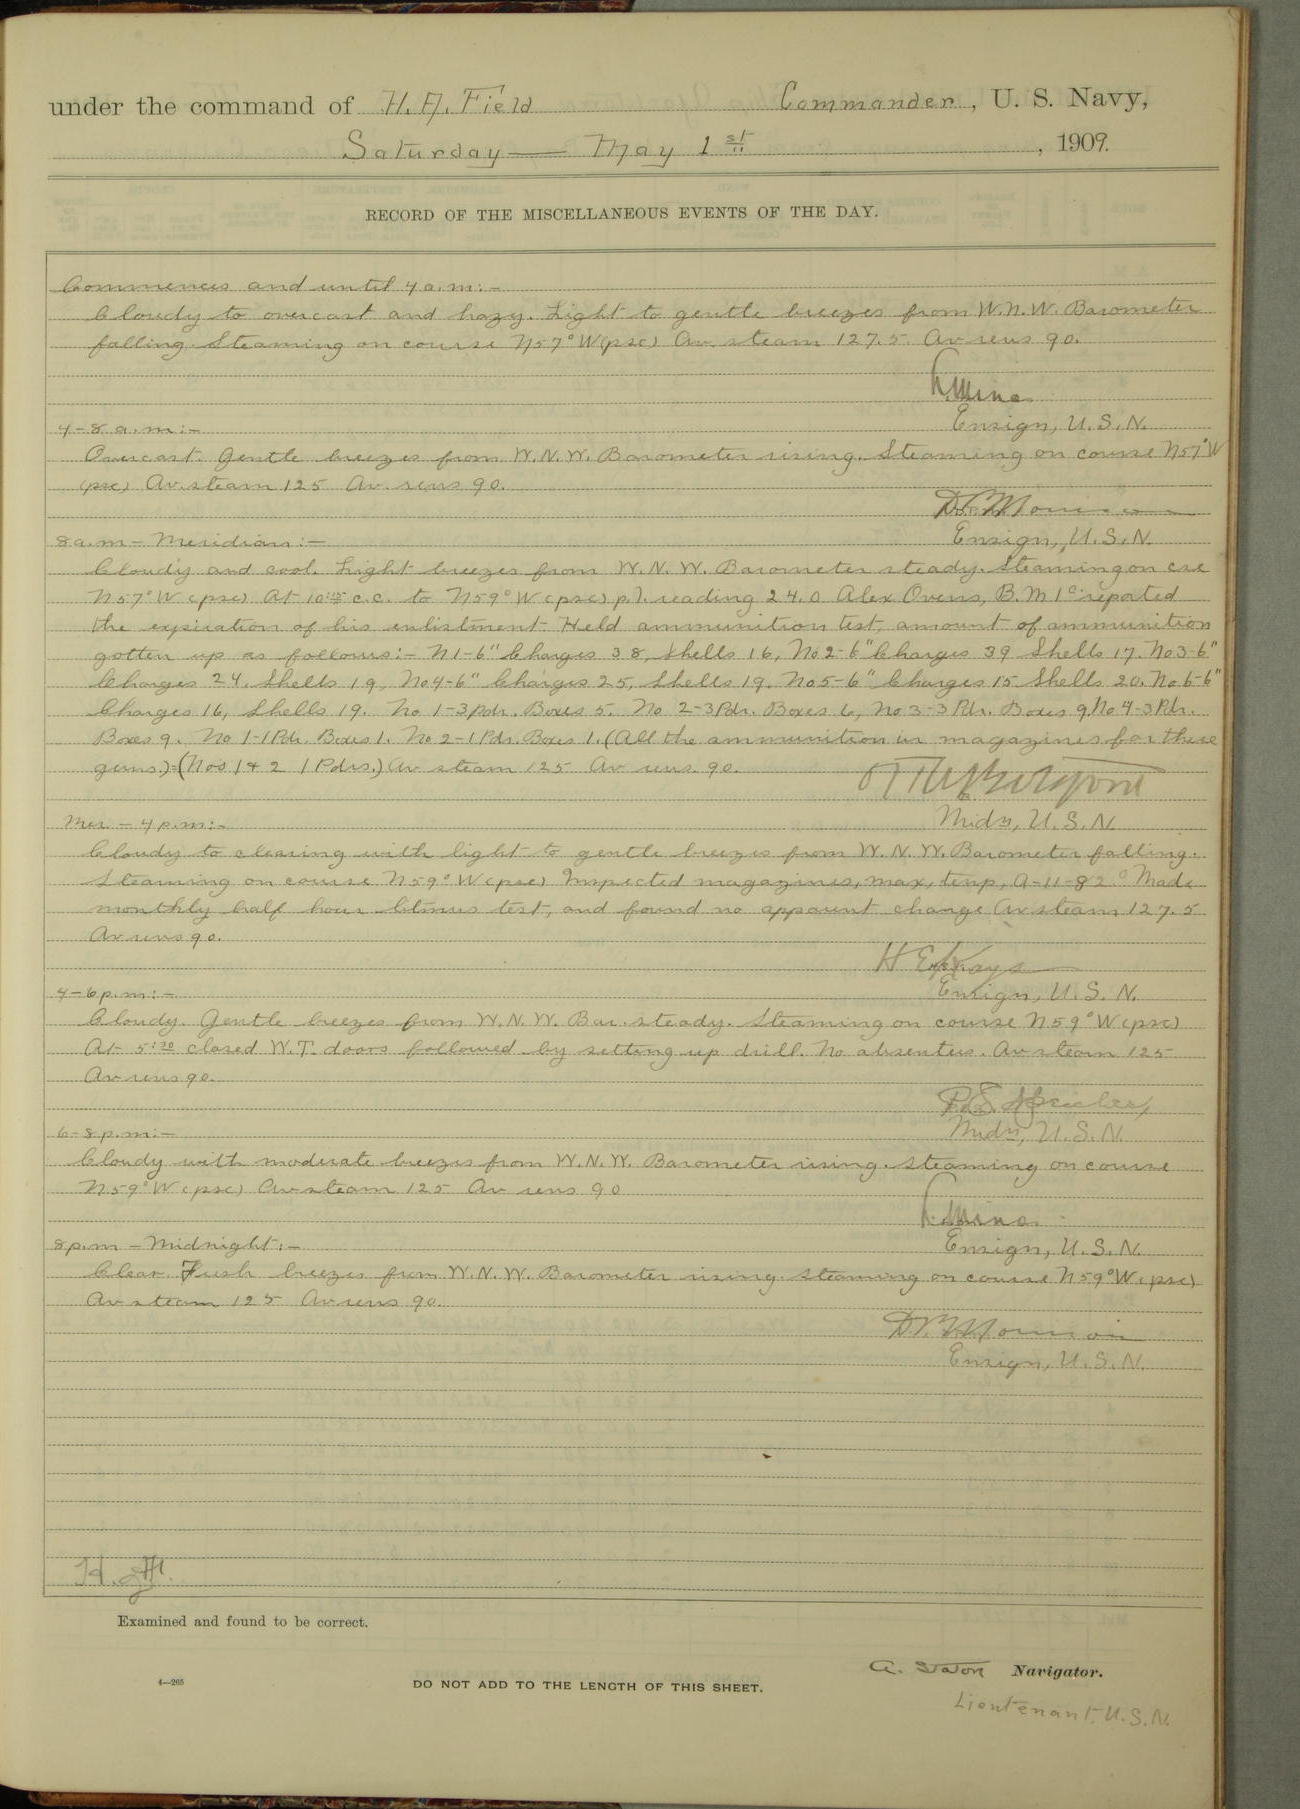 under the command of H. A. Field Commander, U. S. Navy,
Saturday — May 1st, 1909.
RECORD OF THE MISCELLANEOUS EVENTS OF THE DAY.
Commences and until 4 a.m:-
Cloudy to overcast and hazy. Light to gentle breezes from W.N.W. Barometer
falling. Steaming on course N57°W(psc) Av. steam 127.5 Av revs 90.
Ensign, U.S.N.
4-8 a.m:-
Overcast. Gentle breezes from W.N.W. Barometer rising. Steaming on course N57°W
(psc) Av. steam 125 Av. revs 90.
Ensign, U.S.N.
8 a.m - Meridian:-
Cloudy and cool. Light breezes from W.N.W. Barometer steady. Steaming on cse
N57°W (psc) At 10:15 c.c. to N59°W (psc) p.l. reading 24.0 Alex Ovens, B.M 1c reported
the expiration of his enlistment. Held ammunition test, amount of ammunition
gotten up as follows:- N1-6" Charges 38, Shells 16, No2-6" Charges 39 Shells 17. No3-6"
Charges 24. Shells 19, No4-6" Charges 25, Shells 19. No5-6" Charges 15 Shells 20. No 6-6"
Charges 16, Shells 19. No 1-3Pdr. Boxes 5. No 2-3Pdr. Boxes 6, No 3-3 Pdr. Boxes 9. No 4-3Pdr.
Boxes 9. No 1-1Pdr. Boxes 1. No 2-1Pdr. Boxes 1. (All the ammunition in magazines for these
guns.)=(Nos 1 & 2 1 Pdrs.) Av steam 125 Av revs. 90.
Midn, U.S.N.
Mer. - 4 p.m:-
Cloudy to clearing with light to gentle breezes from W.N.W. Barometer falling.
Steaming on course N59°W (psc) Inspected magazines, max, temp, A-11-82° Made
monthly half hour litmus test, and found no apparent change Av steam 127.5
Av revs 90.
H E Kays
Ensign, U.S.N.
4-6 p.m:-
Cloudy. Gentle breezes from W.N.W. Bar. steady. Steaming on course N59°W (psc)
At 5:30 closed W.T. doors followed by setting up drill. No absentees. Av steam 125
Av revs 90.
Midn, U.S.N.
6-8 p.m:-
Cloudy with moderate breezes from W.N.W. Barometer rising. Steaming on course
N59°W (psc) Av steam 125 Av revs 90
Ensign, U.S.N.
8 p.m - Midnight:-
Clear. Fresh breezes from W.N.W. Barometer rising. Steaming on course N59°W (psc)
Av steam 125 Av revs 90.
Ensign, U.S.N.
Examined and found to be correct.
A. Staton Navigator.
4—265
DO NOT ADD TO THE LENGTH OF THIS SHEET.
Lieutenant, U.S.N.